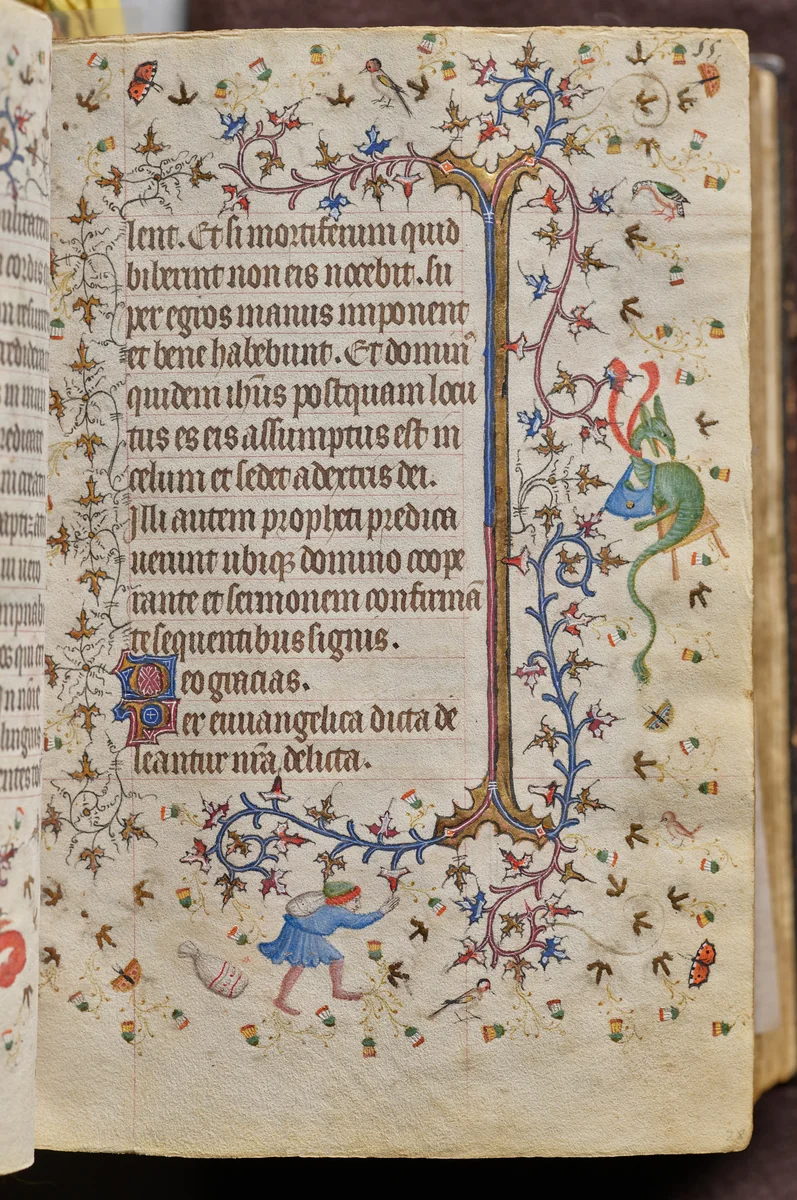 lent. Et si mortiferum quid
biberint non eis nocebit. su
per egros manus imponent
et bene habebunt. Et domin᷒
quidem ihūs postquam locu
tus es eis assumptus est in
celum et sedet adextris dei.
Illi autem propheti predica
uerunt ubiqꝫ domino coope
rante et sermonem confirmā
te sequentibus signis.
Deo gracias.
Per euuangelica dicta de
leantur nr̄a delicta.